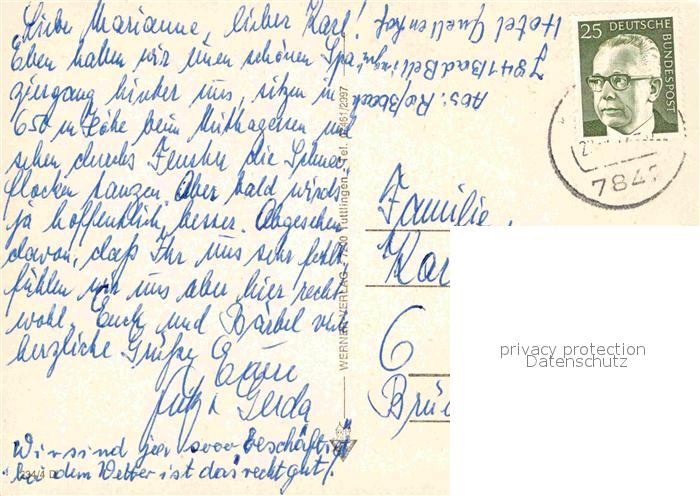 Liebe Marianne, lieber Karl!
Eben haben wir einen schönen Spa-
ziergang hinter uns, sitzen in
650 m Höhe beim Mittagessen und
sehen durchs Fenster die Schnee-
flocken tanzen. Aber bald wirds
ja hoffentlich besser. Abgesehen
davon, daß Ihr uns sehr fehlt
fühlen wir uns aber hier recht
wohl. Euch und Bärbel viele
herzliche Grüße Eure
Fritz + Gerda
Wir sind ja sooo beschäftigt
bei dem Wetter ist das recht gut!
Abs: Roßbach
7841 Bad Bellingen
Hotel Quellenhof
WERNER VERLAG · 7200 Tuttlingen · Tel. 07461/2997
234/4
25 DEUTSCHE
BUNDESPOST
784
Familie
Kar
6
Brü
privacy protection
Datenschutz